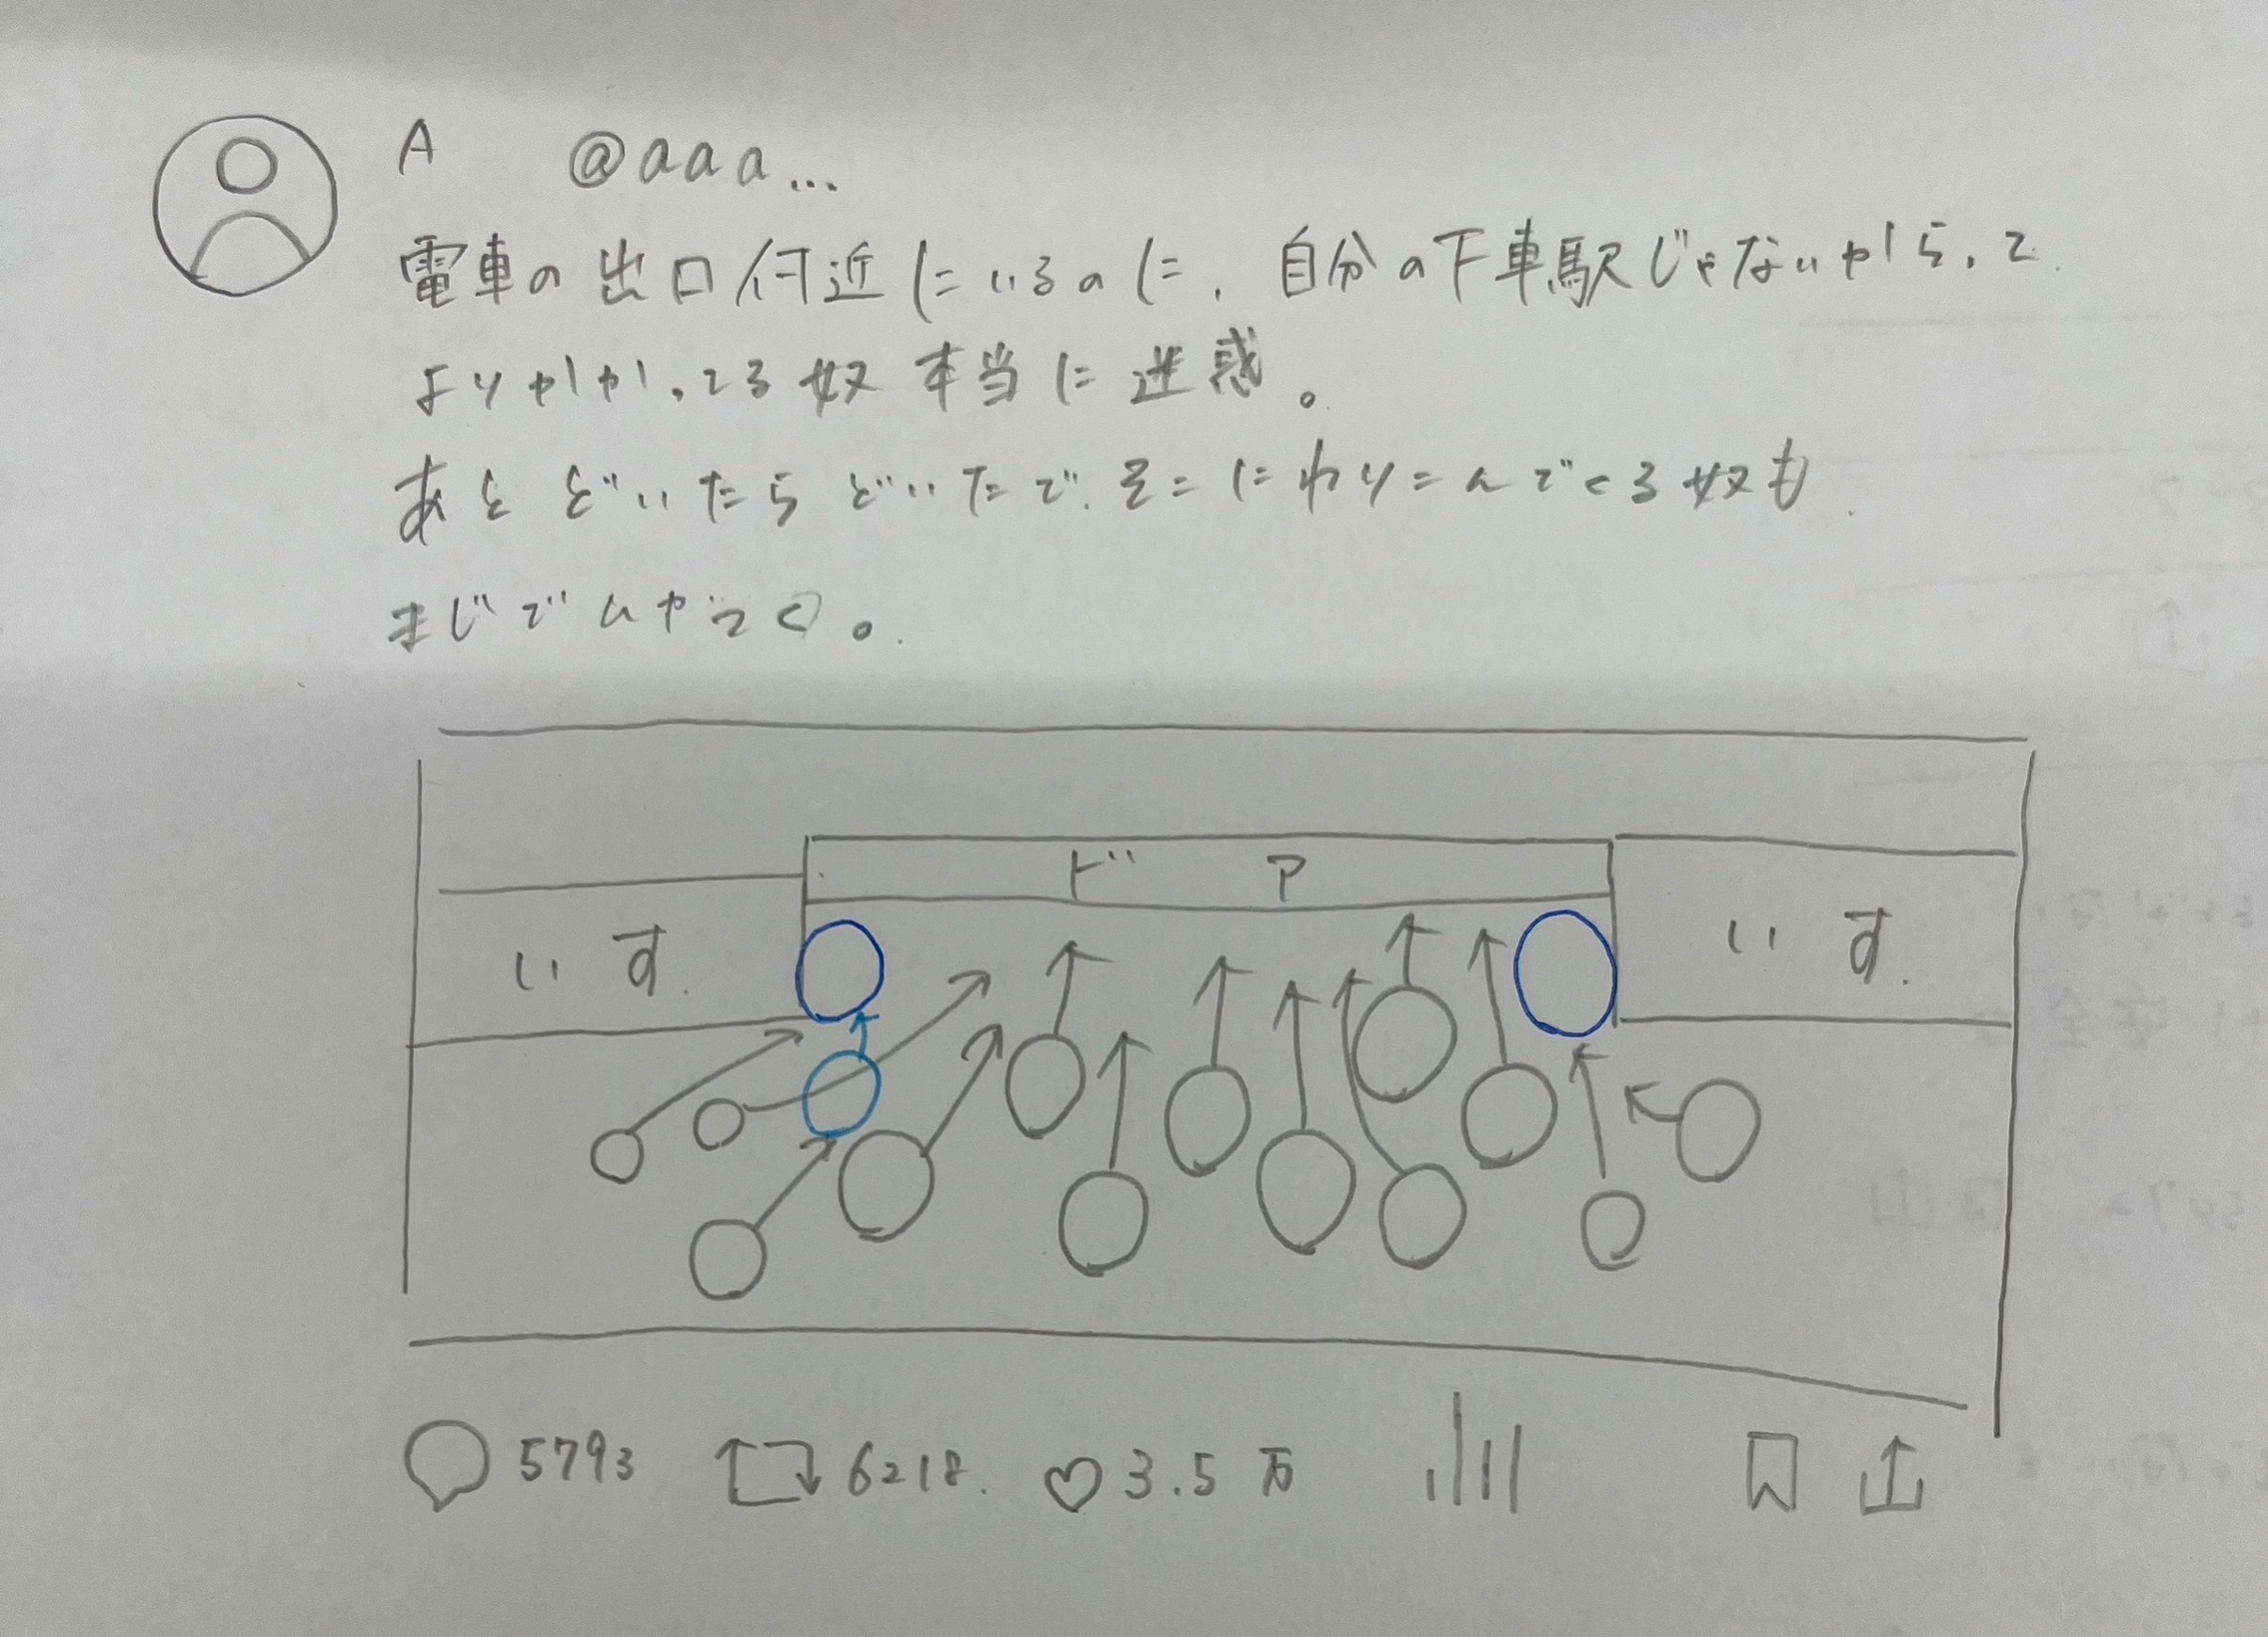 A @aaa...
電車の出口付近にいるのに、自分の下車駅じゃないからって
よりかかってる奴本当に迷惑。
あとどいたらどいたで、そこにわりこんでくる奴も
まじでムカつく。
ドア
いす
いす
5793 6218 3.5万